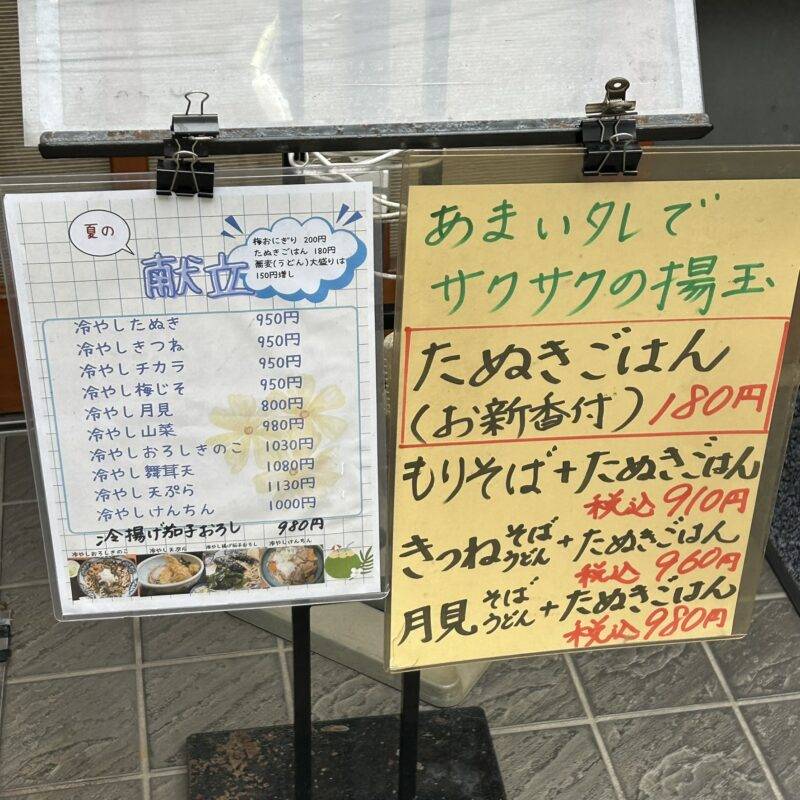 夏の
献立
梅おにぎり 200円
たぬきごはん 180円
蕎麦(うどん)大盛りは
150円増し
冷やしたぬき 950円
冷やしきつね 950円
冷やしチカラ 950円
冷やし梅じそ 950円
冷やし月見 800円
冷やし山菜 980円
冷やしおろしきのこ 1030円
冷やし舞茸天 1080円
冷やし天ぷら 1130円
冷やしけんちん 1000円
冷揚げ茄子おろし 980円
冷やしおろしきのこ 冷やし天ぷら 冷やし揚げ茄子おろし 冷やしけんちん
あまいタレで
サクサクの揚玉
たぬきごはん
(お新香付) 180円
もりそば+たぬきごはん
税込 910円
きつねそばうどん+たぬきごはん
税込 960円
月見そばうどん+たぬきごはん
税込 980円